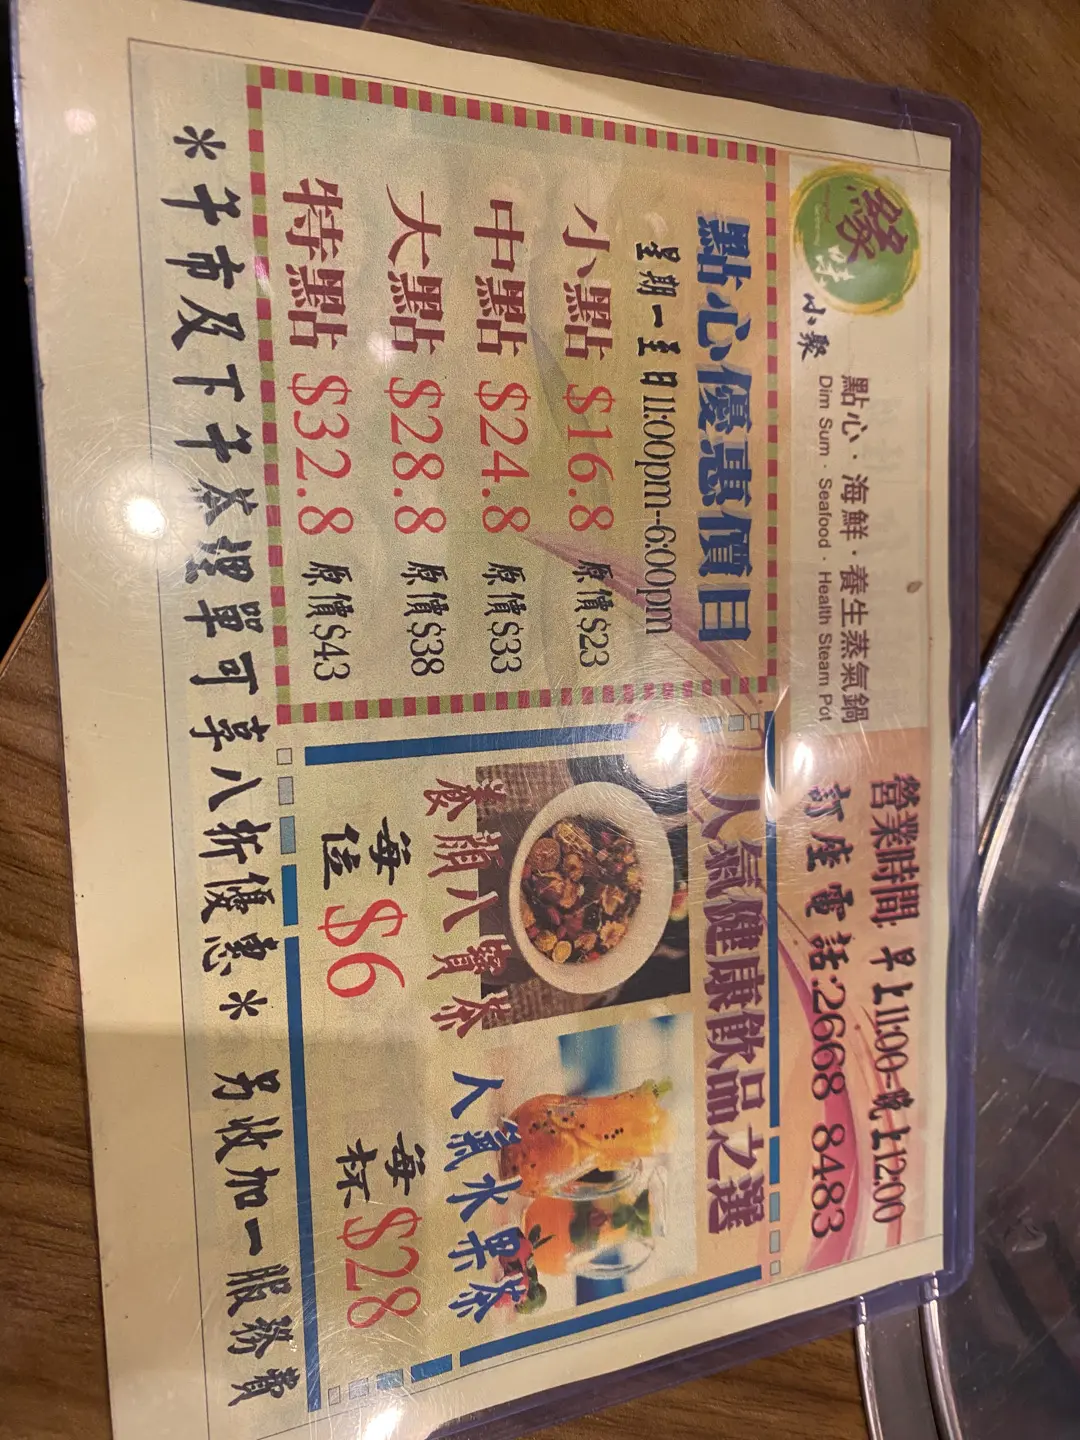 緣味
小聚
點心．海鮮．養生蒸氣鍋
Dim Sum · Seafood · Health Steam Pot
營業時間: 早上11:00-晚上12:00
訂座電話:2668 8483
點心優惠價目
星期一至日11:00pm-6:00pm
小點 $16.8 原價$23
中點 $24.8 原價$33
大點 $28.8 原價$38
特點 $32.8 原價$43
人氣健康飲品之選
養顏八寶茶
每位 $6
人氣水果茶
每杯 $28
*午市及下午茶埋單可享八折優惠* 另收加一服務費